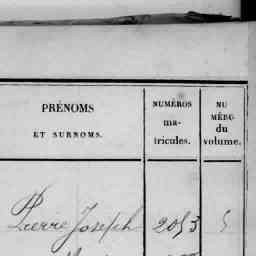 PRÉNOMS
ET SURNOMS.
NUMÉROS
ma-
tricules.
NU
MÉRO
du
volume.
Pierre Joseph 2053 5